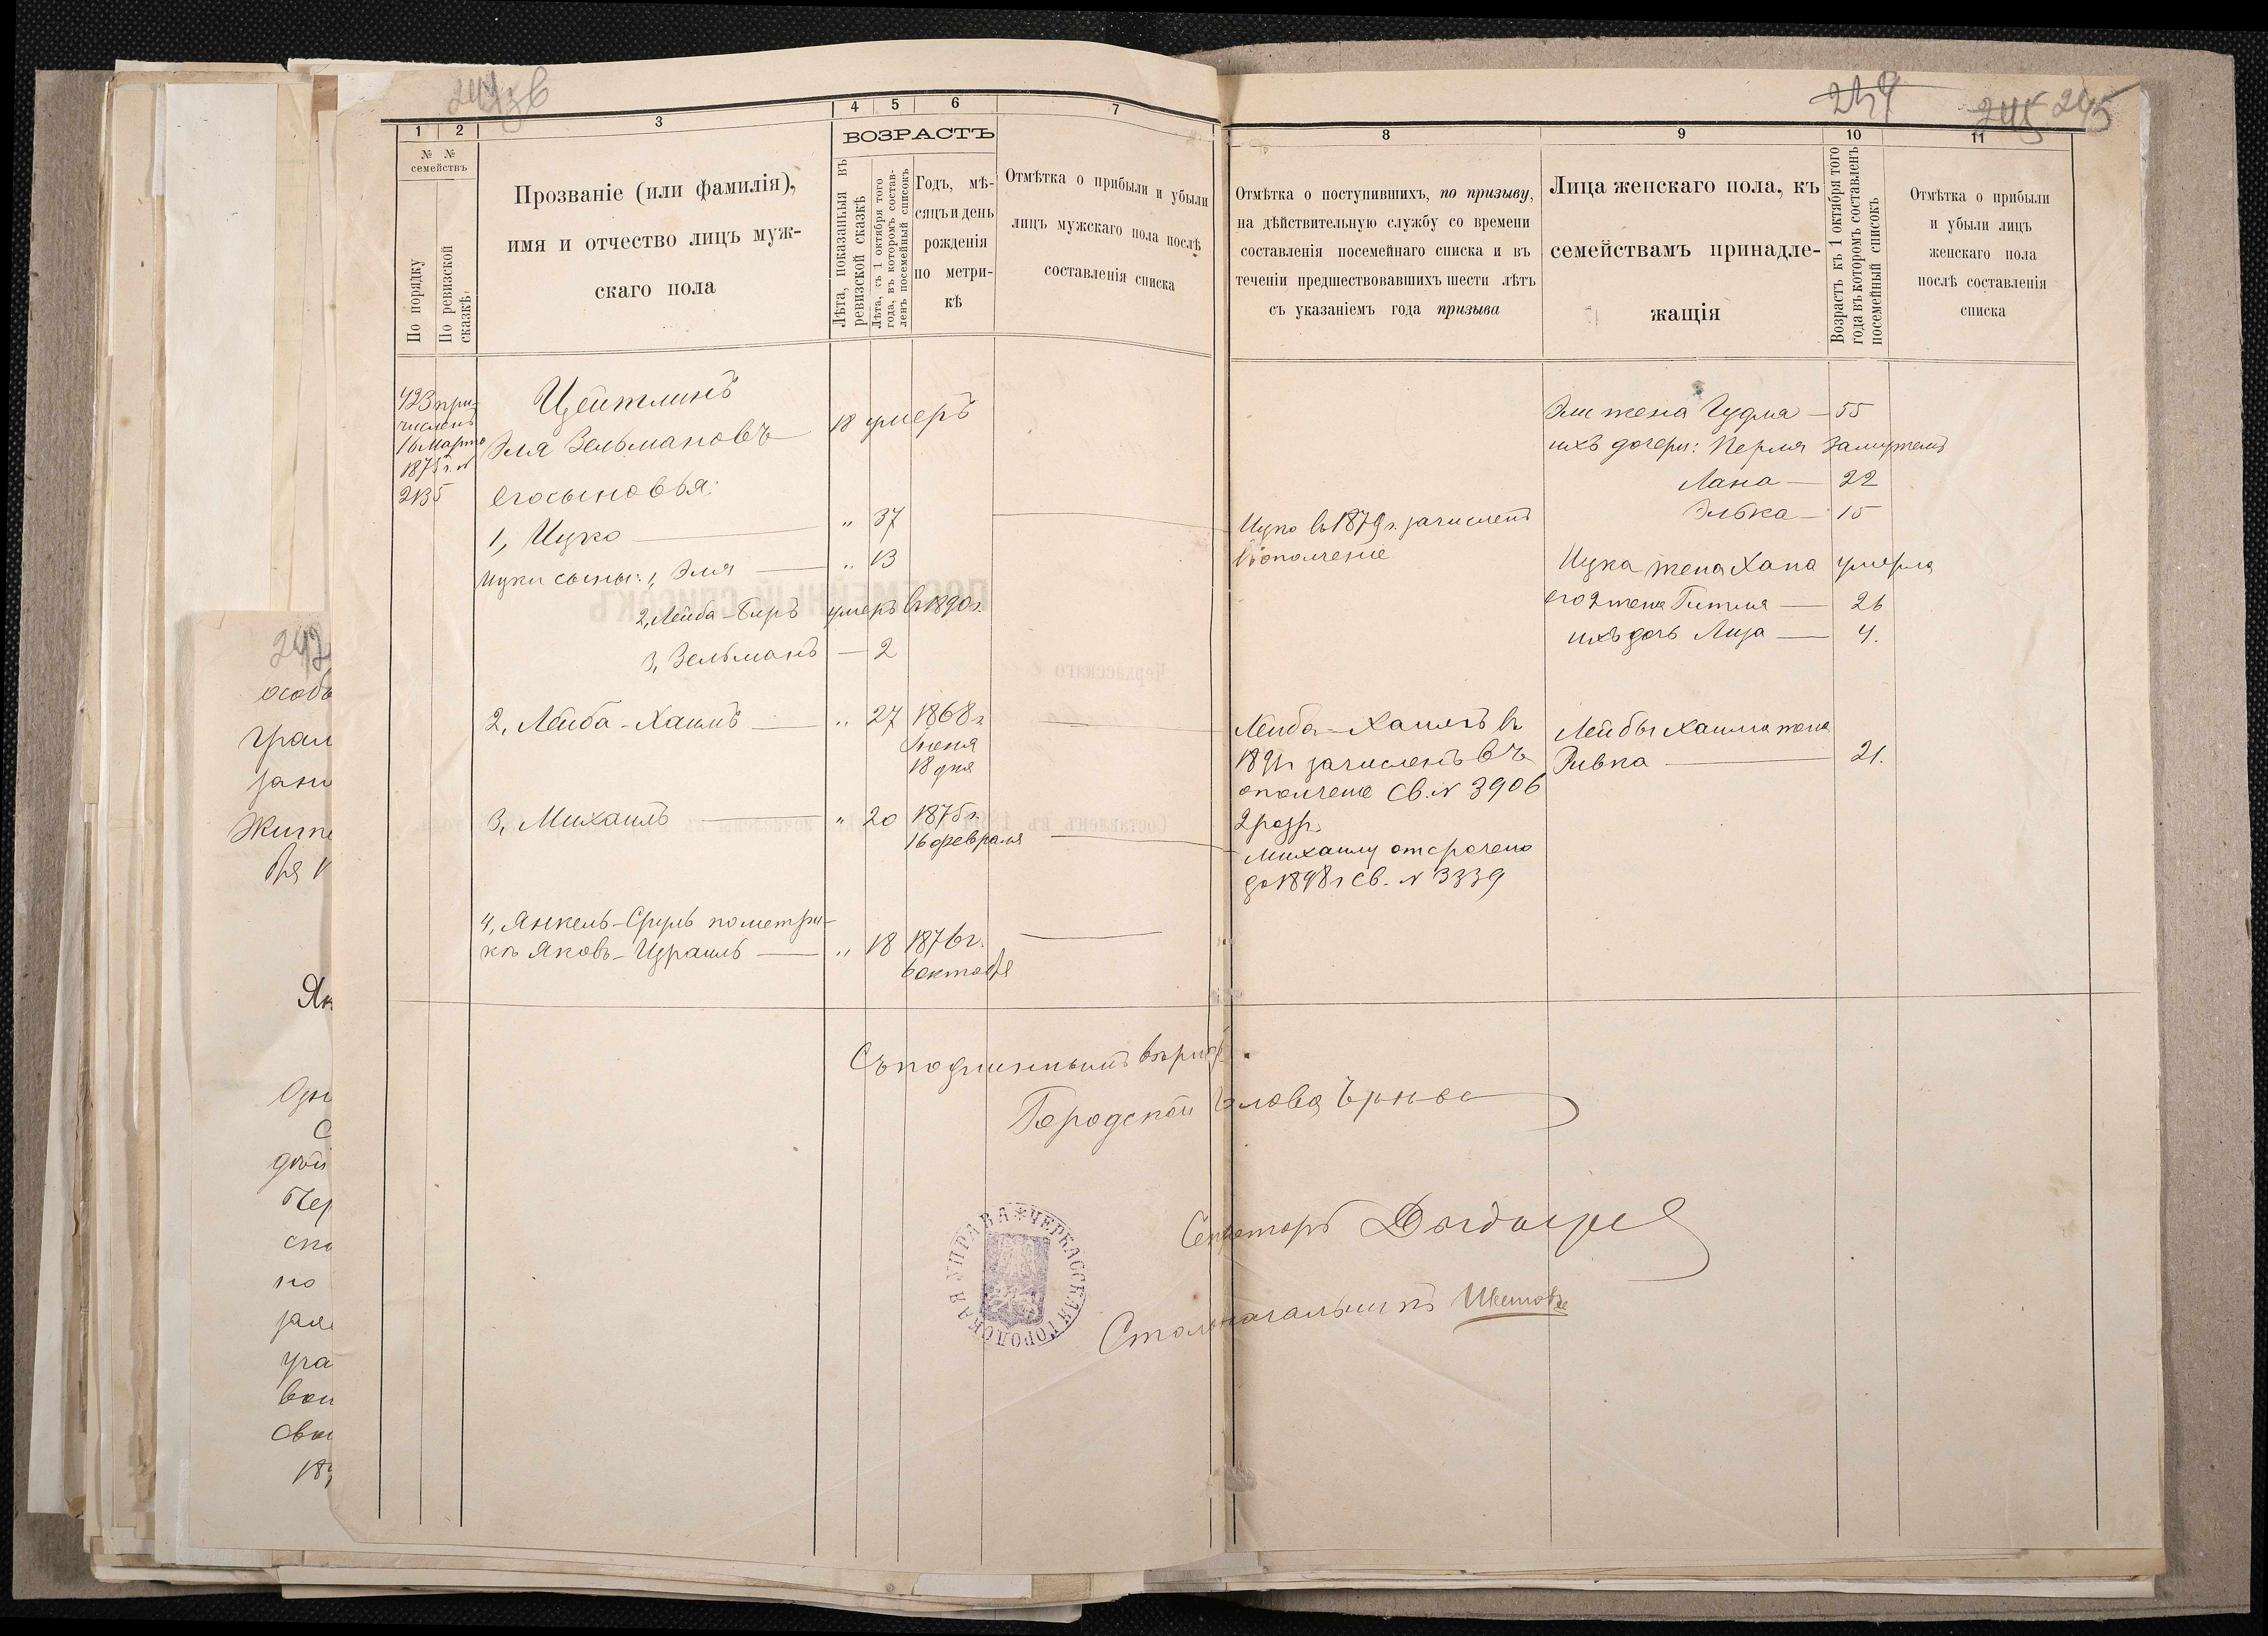 244
245 245
1
2
3
4
5
6
7
№ №
семействъ
По порядку
По ревизской
сказкѣ.
Прозваніе (или фамилія),
имя и отчество лицъ муж-
скаго пола
ВОЗРАСТЪ
Лѣта, показанныя въ
ревизской сказкѣ
Лѣта, съ 1 октября того
года, въ которомъ состав-
ленъ посемейный списокъ
Годъ, мѣ-
сяцъ и день
рожденія
по метри-
кѣ
Отмѣтка о прибыли и убыли
лицъ мужскаго пола послѣ
составленія списка
423 при-
численъ
16 Марта
1875 г. №
2135
Цейтлинъ
Эля Зельмановъ 18 умеръ
его сыновья:
1, Ицко — " 37
Ицки сыны: 1, Эля — " 13
2, Лейба-Беръ умеръ въ 1890 г.
3, Зельманъ — 2
2, Лейба-Хаимъ — " 27 1868 г.
Іюня
18 дня
3, Михаилъ — " 20 1875 г.
16 февраля
4, Янкель-Сруль по метри-
кѣ Яковъ-Израиль — " 18 1876 г.
6 октября
8
9
10
11
Отмѣтка о поступившихъ, по призыву,
на дѣйствительную службу со времени
составленія посемейнаго списка и въ
теченіи предшествовавшихъ шести лѣтъ
съ указаніемъ года призыва
Лица женскаго пола, къ
семействамъ принадле-
жащія
Возрастъ къ 1 октября того
года въ которомъ составленъ
посемейный списокъ
Отмѣтка о прибыли
и убыли лицъ
женскаго пола
послѣ составленія
списка
Эли жена Гудля — 55
ихъ дочери: Перля замужемъ
Хана — 22
Элька — 15
Ицко въ 1879 г. зачисленъ
въ ополченіе
Ицка жена Хана умерла
его 2 жена Гитля — 26
ихъ дочь Лиза — 4.
Лейба-Хаимъ въ
зачисленъ въ
ополченіе Св. № 3906
2 разр.
Лейбы Хаима жена
Ривка — 21.
Михаилу отсрочено
до 1898 г. Св. № 3339
Съ подлиннымъ вѣрно.
Городской Голова
Секретарь
Столоначальникъ
ЧЕРКАССКАЯ ГОРОДСКАЯ УПРАВА
242
особ
грам
зани
Жите
бря
Як
Одн
С
дой
Чер
спи
но
уча
вои
сви